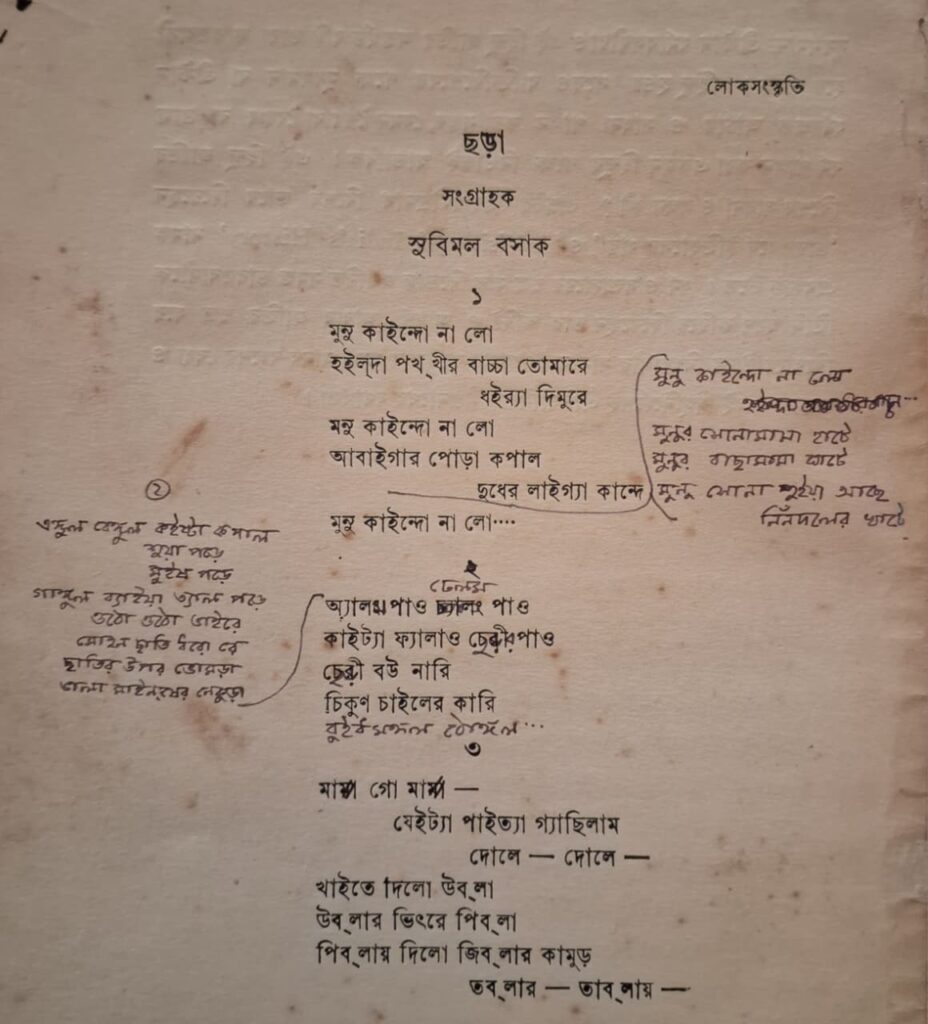 লোকসংস্কৃতি
ছড়া
সংগ্রাহক
সুবিমল বসাক
১
মুনু কাইন্দো না লো
হইল্দা পখ্খীর বাচ্চা তোমারে
ধইর‍্যা দিমুরে
মনু কাইন্দো না লো
আবাইগার পোড়া কপাল
দুধের লাইগ্যা কান্দে
মুনু কাইন্দো না লো....
মুনু কাইন্দো না লো
মুনুর সোনামামা হাটে
মুনুর
মুনু সোনা শুইয়া আছে
২
কপাল
পড়ে
পড়ে
পড়ে
ওঠো ওঠো ভাইরে
ছাতি ধরো রে
ছাতির উপর ভোমরা
২
অ্যালমপাও পাও
কাইট্যা ফ্যালাও পাও
বউ নারি
চিকুণ চাইলের কারি
৩
মামা গো মামা —
যেইট্যা পাইত্যা গ্যাছিলাম
দোলে — দোলে —
খাইতে দিলো উব্লা
উব্লার ভিৎরে পিব্লা
পিব্লায় দিলো জিব্লার কামুড়
তব্লার — তাব্লায় —